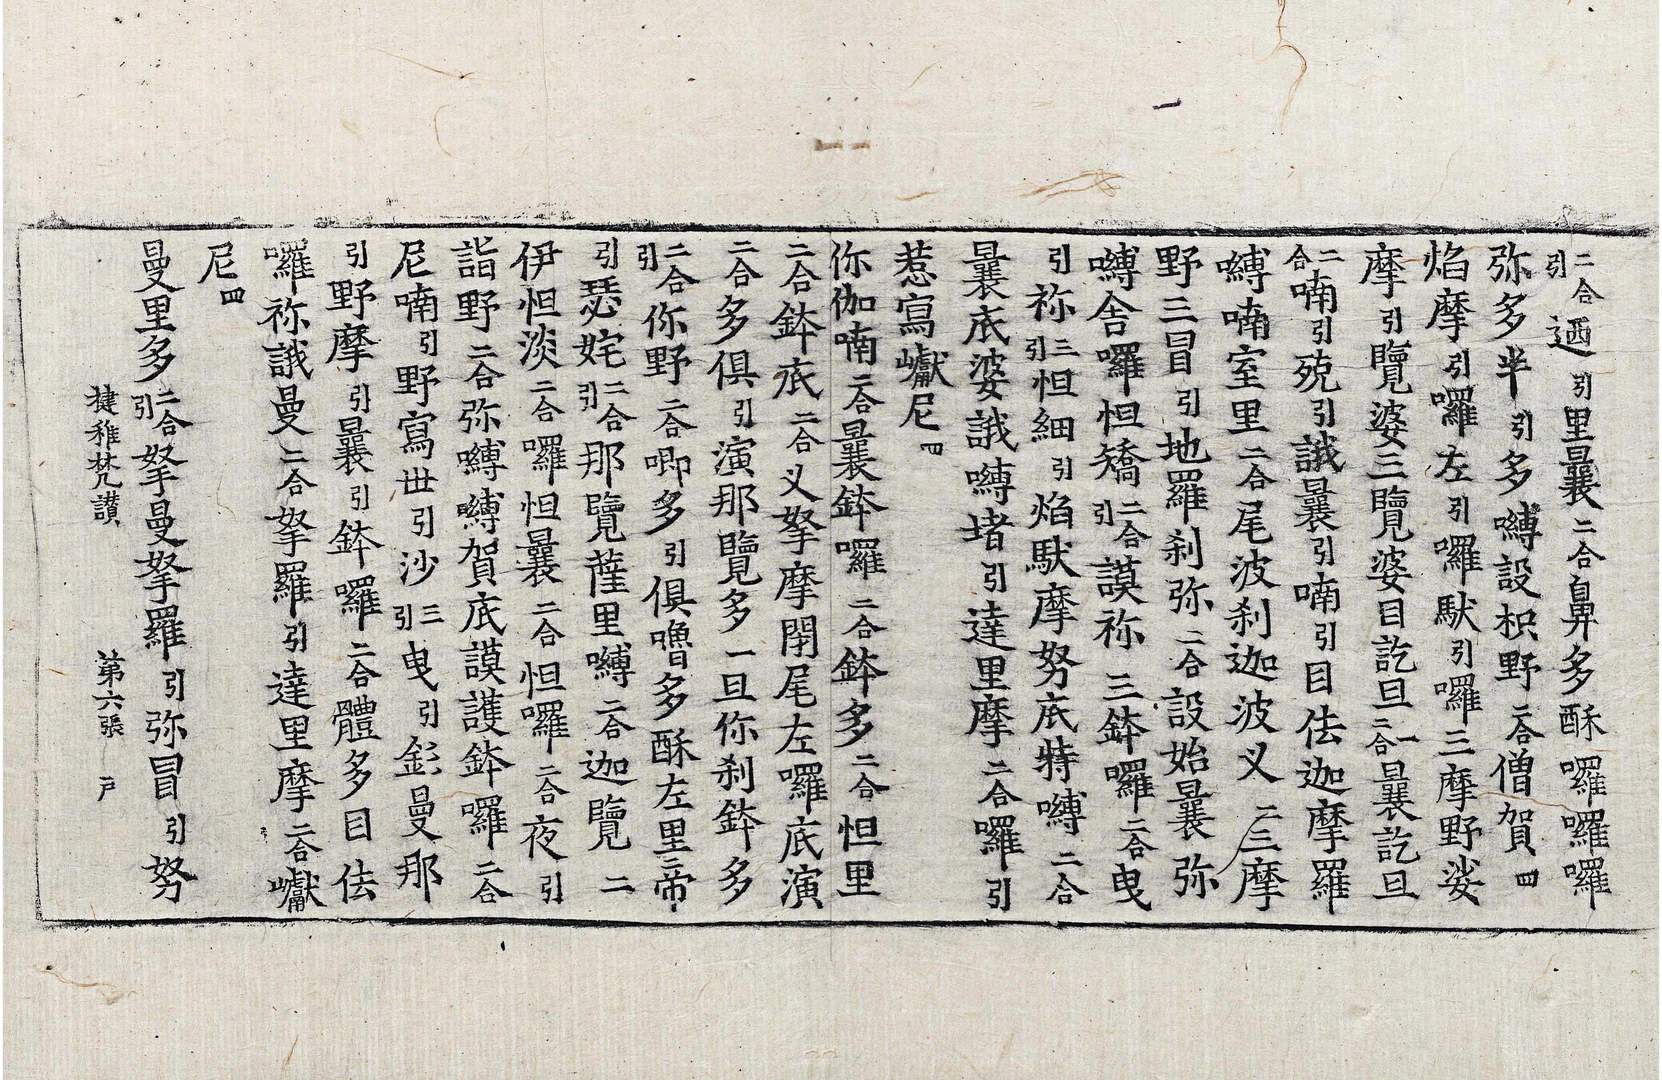 二合引迺引里曩二合鼻多酥囉囉囉
弥多半引多嚩設枳野二合僧賀四
焰摩引囉左引囉䭾引囉三摩野娑
摩引覽婆三覽婆目訖旦二合一曩訖旦
二合喃引殑引誐曩引喃引目佉迦摩羅
嚩喃室里二合尾波剎迦波义二三摩
野三冒引地羅剎弥二合設始曩弥
嚩舍囉怛矯二合引謨祢三鉢囉二合曳
引祢三引怛細引焰䭾摩努底特嚩二合
曩底婆誐嚩堵引達里摩二合囉引
惹寫巘尼四
你伽喃二合曩鉢囉二合鉢多二合怛里
二合鉢底二合义拏摩閉尾左囉底演
二合多俱引演那覽多一旦你剎鉢多
二合引你野二合唧多引俱嚕多酥左里二帝
引瑟姹二合引那覽薩里嚩二合迦覽二
伊怛淡二合囉怛曩二合怛囉二合夜引
詣野二合弥嚩嚩賀底謨護鉢囉二合
尼喃引野寫世引沙三引曳引曼那
引野摩引曩引鉢囉二合體多目佉
囉祢誐曼二合拏羅引達里摩二合巘
尼四
曼里多二合引拏曼拏羅引弥冒引努
揵稚梵讃 第六張 戸